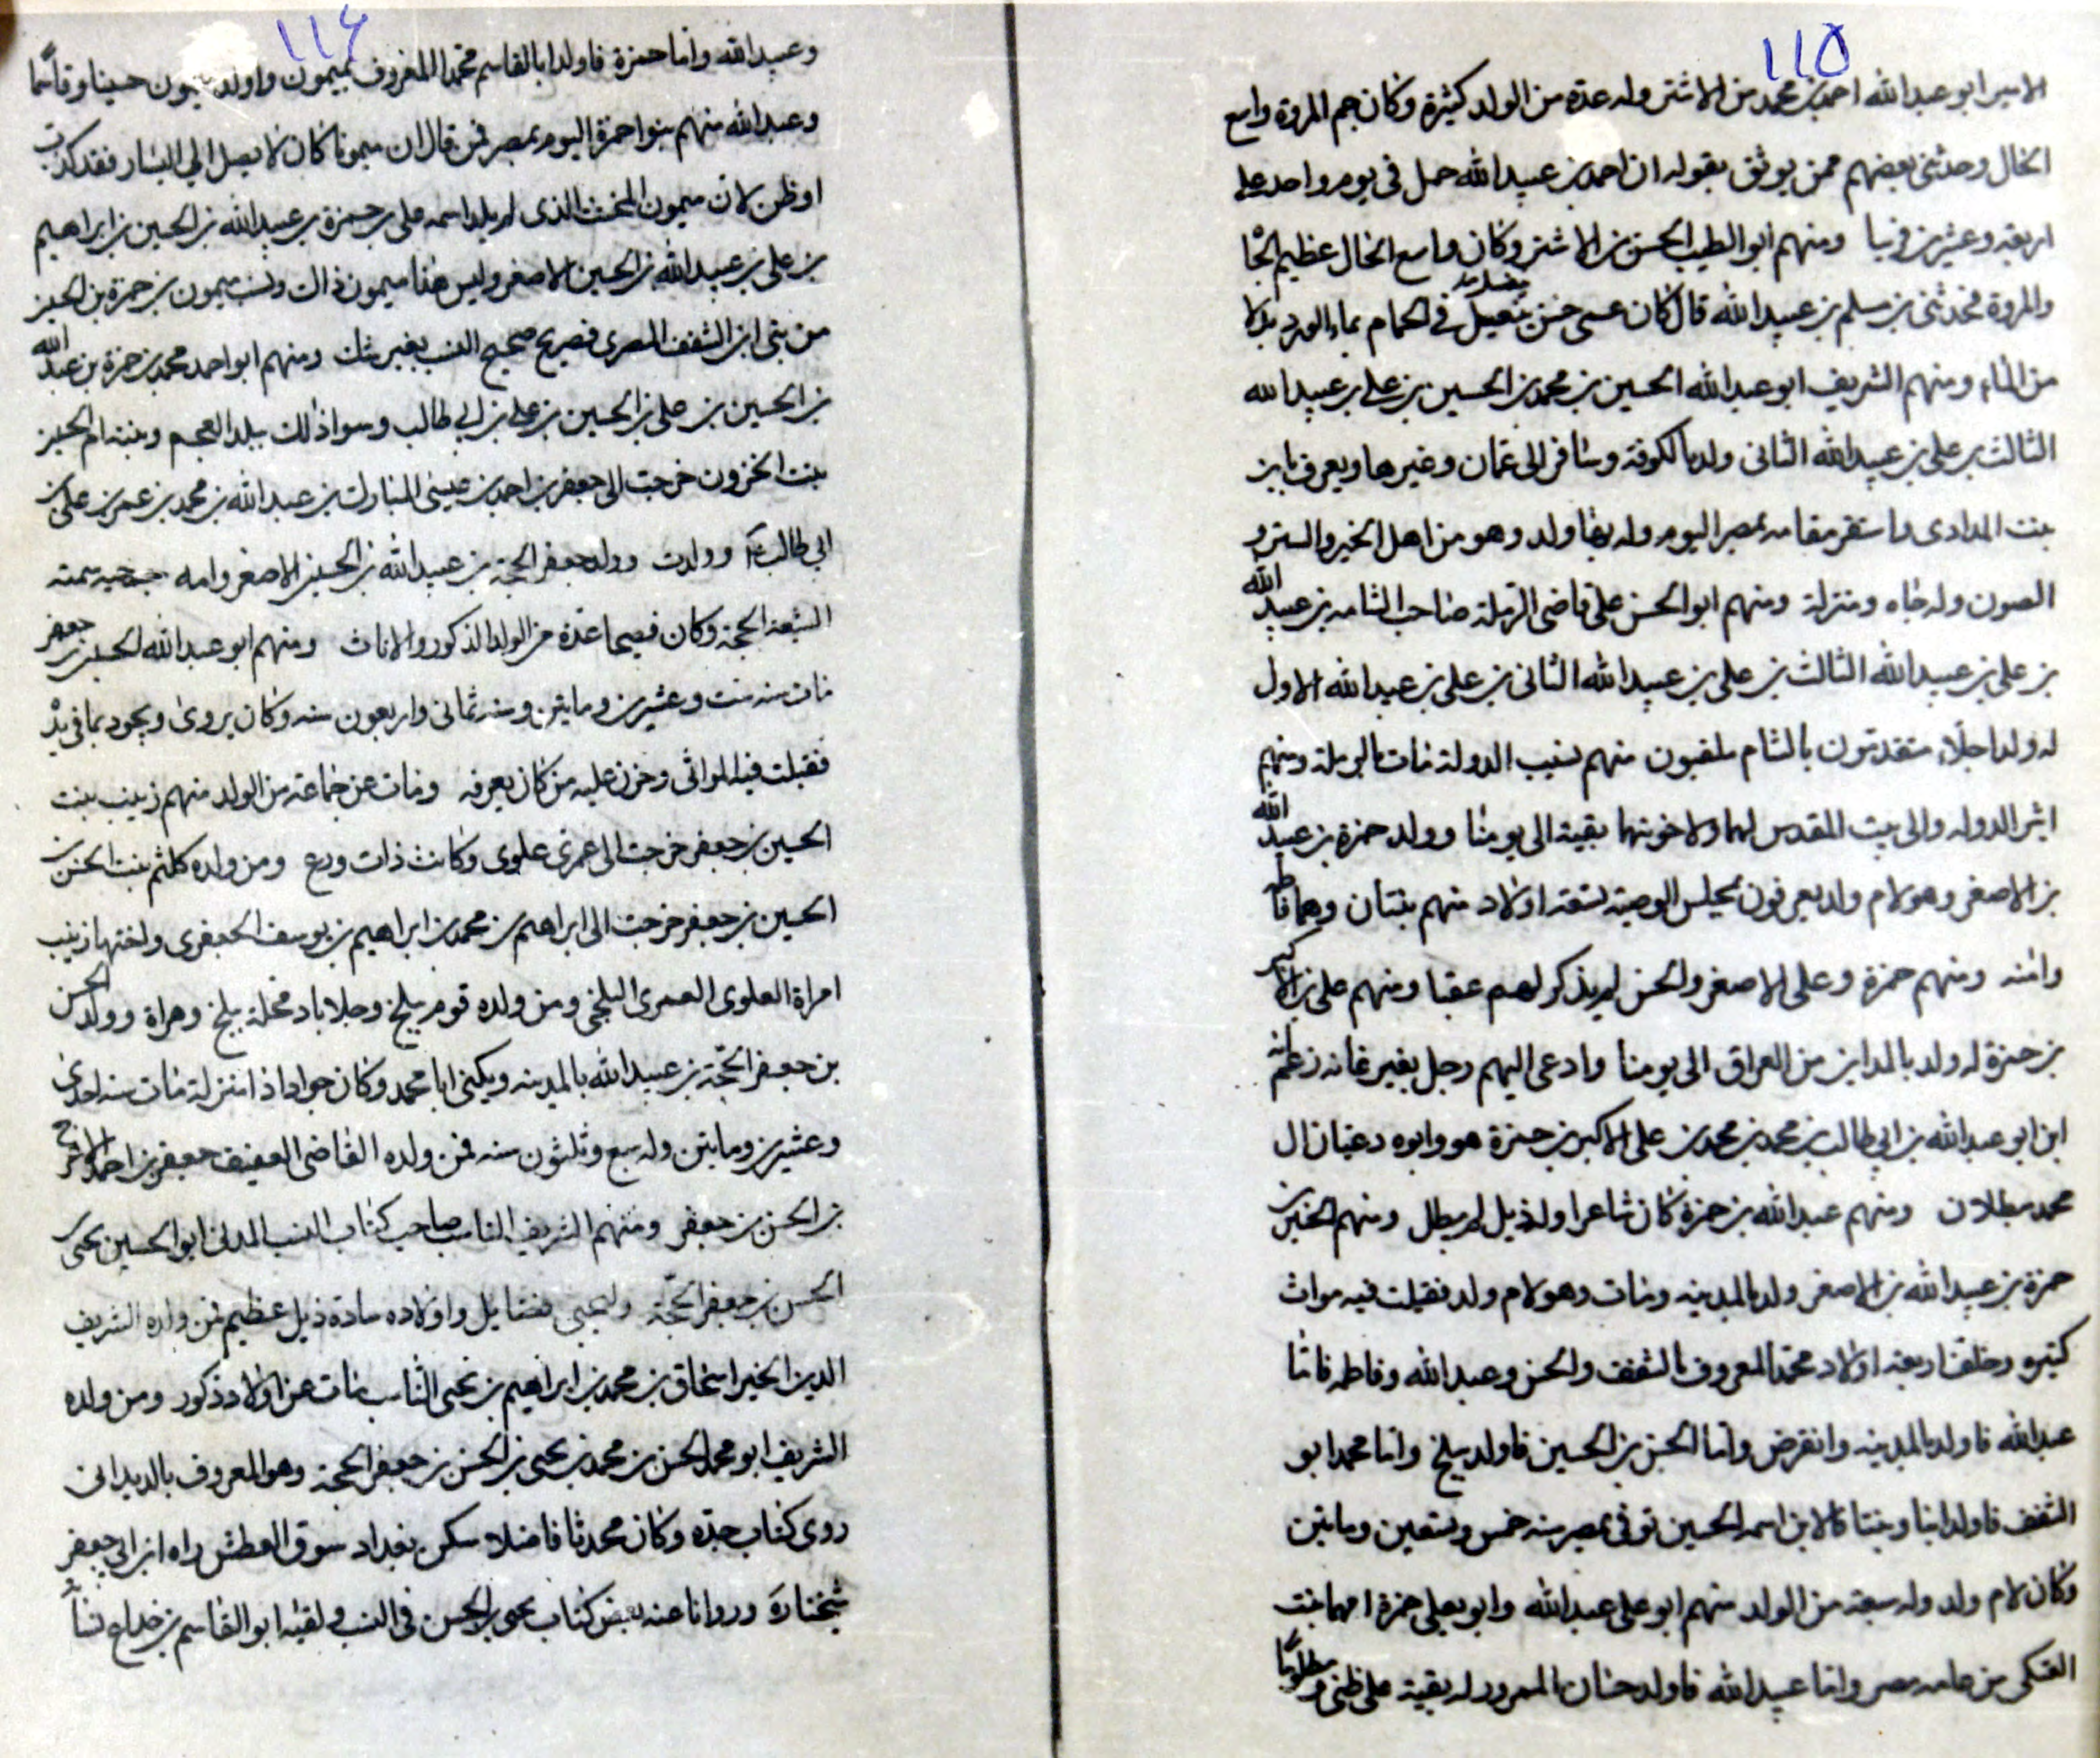 ١١٥
الامير ابو عبدالله احمد بن محمد بن الاشتر وله عدة من الولد كثيرة وكان جم المروة واسع
الحال وحدثنى بعضهم ممن يوثق بقوله ان احمد بن عبيدالله حمل فى يوم واحد على
اربعة وعشرين فرسا ومنهم ابو الطيب الحسن بن الاشتر وكان واسع الحال عظيم الجا
والمروة فحدثنى بن مسلم بن عبيدالله قال كان عمى حسن في الحمام بماء الورد بدلا
من الماء ومنهم الشريف ابو عبدالله الحسين بن محمد بن الحسين بن على بن عبيدالله
الثالث بن على بن عبيدالله الثانى ولد بالكوفة وسافر الى عمان وغيرها ويعرف بابن
بنت المدادى واستقر مقامه بمصر اليوم وله بها ولد وهو من اهل الخير والستر و
الصون وله جاه ومنزلة ومنهم ابو الحسن على قاضى الرملة صاحب الشامه بن عبيد الله
بن على بن عبيدالله الثالث بن على بن عبيدالله الثانى بن على بن عبيدالله الاول
له ولد اجلاء متقدمون بالشام ملقبون منهم نسيب الدولة مات بالرملة ومنهم
اثير الدوله والى بيت المقدس لهما ولاخوتهما بقية الى يومنا وولد حمزة بن عبيد الله
بن الاصغر وهو لام ولد يعرفون تسعة اولاد منهم بنتان وهما فاطمه
وامنه ومنهم حمزة وعلى الاصغر والحسن لم يذكر لهم عقبا ومنهم على الاكبر
بن حمزة له ولد بالمداين من العراق الى يومنا وادعى اليهم رجل بغير عانه زعم انه
ابن ابو عبدالله بن ابي طالب بن محمد بن محمد بن على الاكبر بن حمزة هو وابوه دعيان ال
محمد مبطلان ومنهم عبدالله بن حمزة كان شاعرا وله ذيل لم يطل ومنهم الحسين بن
حمزة بن عبيدالله بن الاصغر ولد بالمدينه ومات وهو لام ولد فقيلت فيه مراث
كثيره وخلف اربعه اولاد محمدا المعروف بالشفف والحسن وعبدالله وفاطمه فاما
عبدالله فاولد بالمدينه وانقرض واما الحسن بن الحسين فاولد ببلخ واما محمد ابو
الشفف فاولد ابنا وبنتا فالابن اسمه الحسين توفى بمصر سنه خمس وتسعين ومايتين
وكان لام ولد وله سبعة من الولد منهم ابو على عبدالله وابو يعلى حمزة امهما بنت
العكى من عامه مصر واما عبيدالله فاولد حنان الممرور له بقية على ظنى
١١٤
وعبيدالله واما حمزة فاولد ابا القاسم محمدا المعروف بميمون واولد ميمون حسينا وقاسما
وعبدالله منهم بنوا حمزة اليوم بمصر فمن قال ان ميمونا كان لا يصل الى النساء فقد كذب
او ظن لان ميمون المخنث الذى لم يلد اسمه على بن حمزة بن عبيدالله بن الحسين بن ابراهيم
بن على بن عبيدالله بن الحسين الاصغر وليس هذا ميمون ذاك ونسب ميمون بن حمزة بن الحسين
من بنى ابن الشفف المصرى فصريح صحيح النسب بغير شك ومنهم ابو احمد محمد بن حمزة بن عبيد الله
بن الحسين بن على بن الحسين بن على بن ابي طالب وسواذلك ببلد العجم وبنته ام الحسين
بنت الحزون خرجت الى جعفر بن احمد بن عيسى المبارك بن عبدالله بن محمد بن عمر بن على بن
ابى طالب وولدت وولد جعفر الحجة بن عبيدالله بن الحسين الاصغر وامه سمته
الشيعة الحجة وكان فصيحا عدة من الولد الذكور والاناث ومنهم ابو عبدالله الحسين بن جعفر
مات سنه ست وعشرين ومايتين وسنه ثمانى واربعون سنه وكان يروى ويجود بما فى يده
فقيلت فيه المراثى وحزن عليه من كان يعرفه ومات عن جماعة من الولد منهم زينب بنت
الحسين بن جعفر خرجت الى عمرى علوى وكانت ذات ورع ومن ولده كلثم بنت الحسن بن
الحسين بن جعفر خرجت الى ابراهيم بن محمد بن ابراهيم بن يوسف الجعفرى واختها زينب
امراة العلوى العمرى البلخى ومن ولده قوم ببلخ وجلاباد محلة ببلخ وهراة وولد الحسن
بن جعفر الحجة بن عبيدالله بالمدينه ويكنى ابا محمد وكان جوادا ذا منزلة مات سنه احدى
وعشرين ومايتين وله سبع وثلثون سنه فمن ولده القاضى العفيف جعفر بن احمد الاعرج
بن الحسن بن جعفر ومنهم الشريف النسابه صاحب كتاب النسب المدنى ابو الحسين يحيى بن
الحسن بن جعفر الحجة وليحيى فضايل واولاده سادة ذيل عظيم فمن ولده الشريف
الدين الخير اسحاق بن محمد بن ابراهيم بن يحيى النساب مات عن اولاد ذكور ومن ولده
الشريف ابو محمد الحسن بن محمد بن يحيى بن الحسن بن جعفر الحجة وهو المعروف بالديدانى
روى كتاب جده وكان محدثا فاضلا سكن بغداد سوق العطش راه ابن ابى جعفر
شيخنا ره وروانا عنه بعض كتاب يحيى بن الحسن فى النسب ولقيه ابو القاسم بن خداع نسا